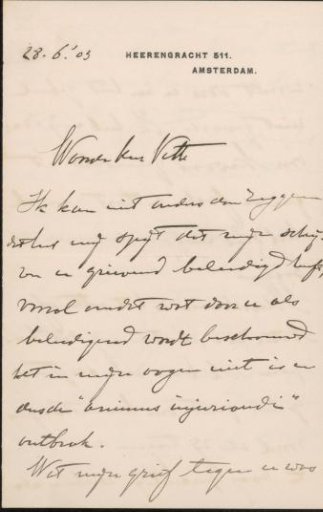 28-6-'03
HEERENGRACHT 511.
AMSTERDAM.
Waarde heer Veth
Ik kan niet anders dan zeggen
dat het mij spijt dat mijn
u grievend beleedigd heeft,
vooral omdat wat door u als
beleedigend wordt beschouwd
het in mijn oogen niet is en
dus de "animus injuriandi"
ontbrak.
Wat mijn grief tegen u was